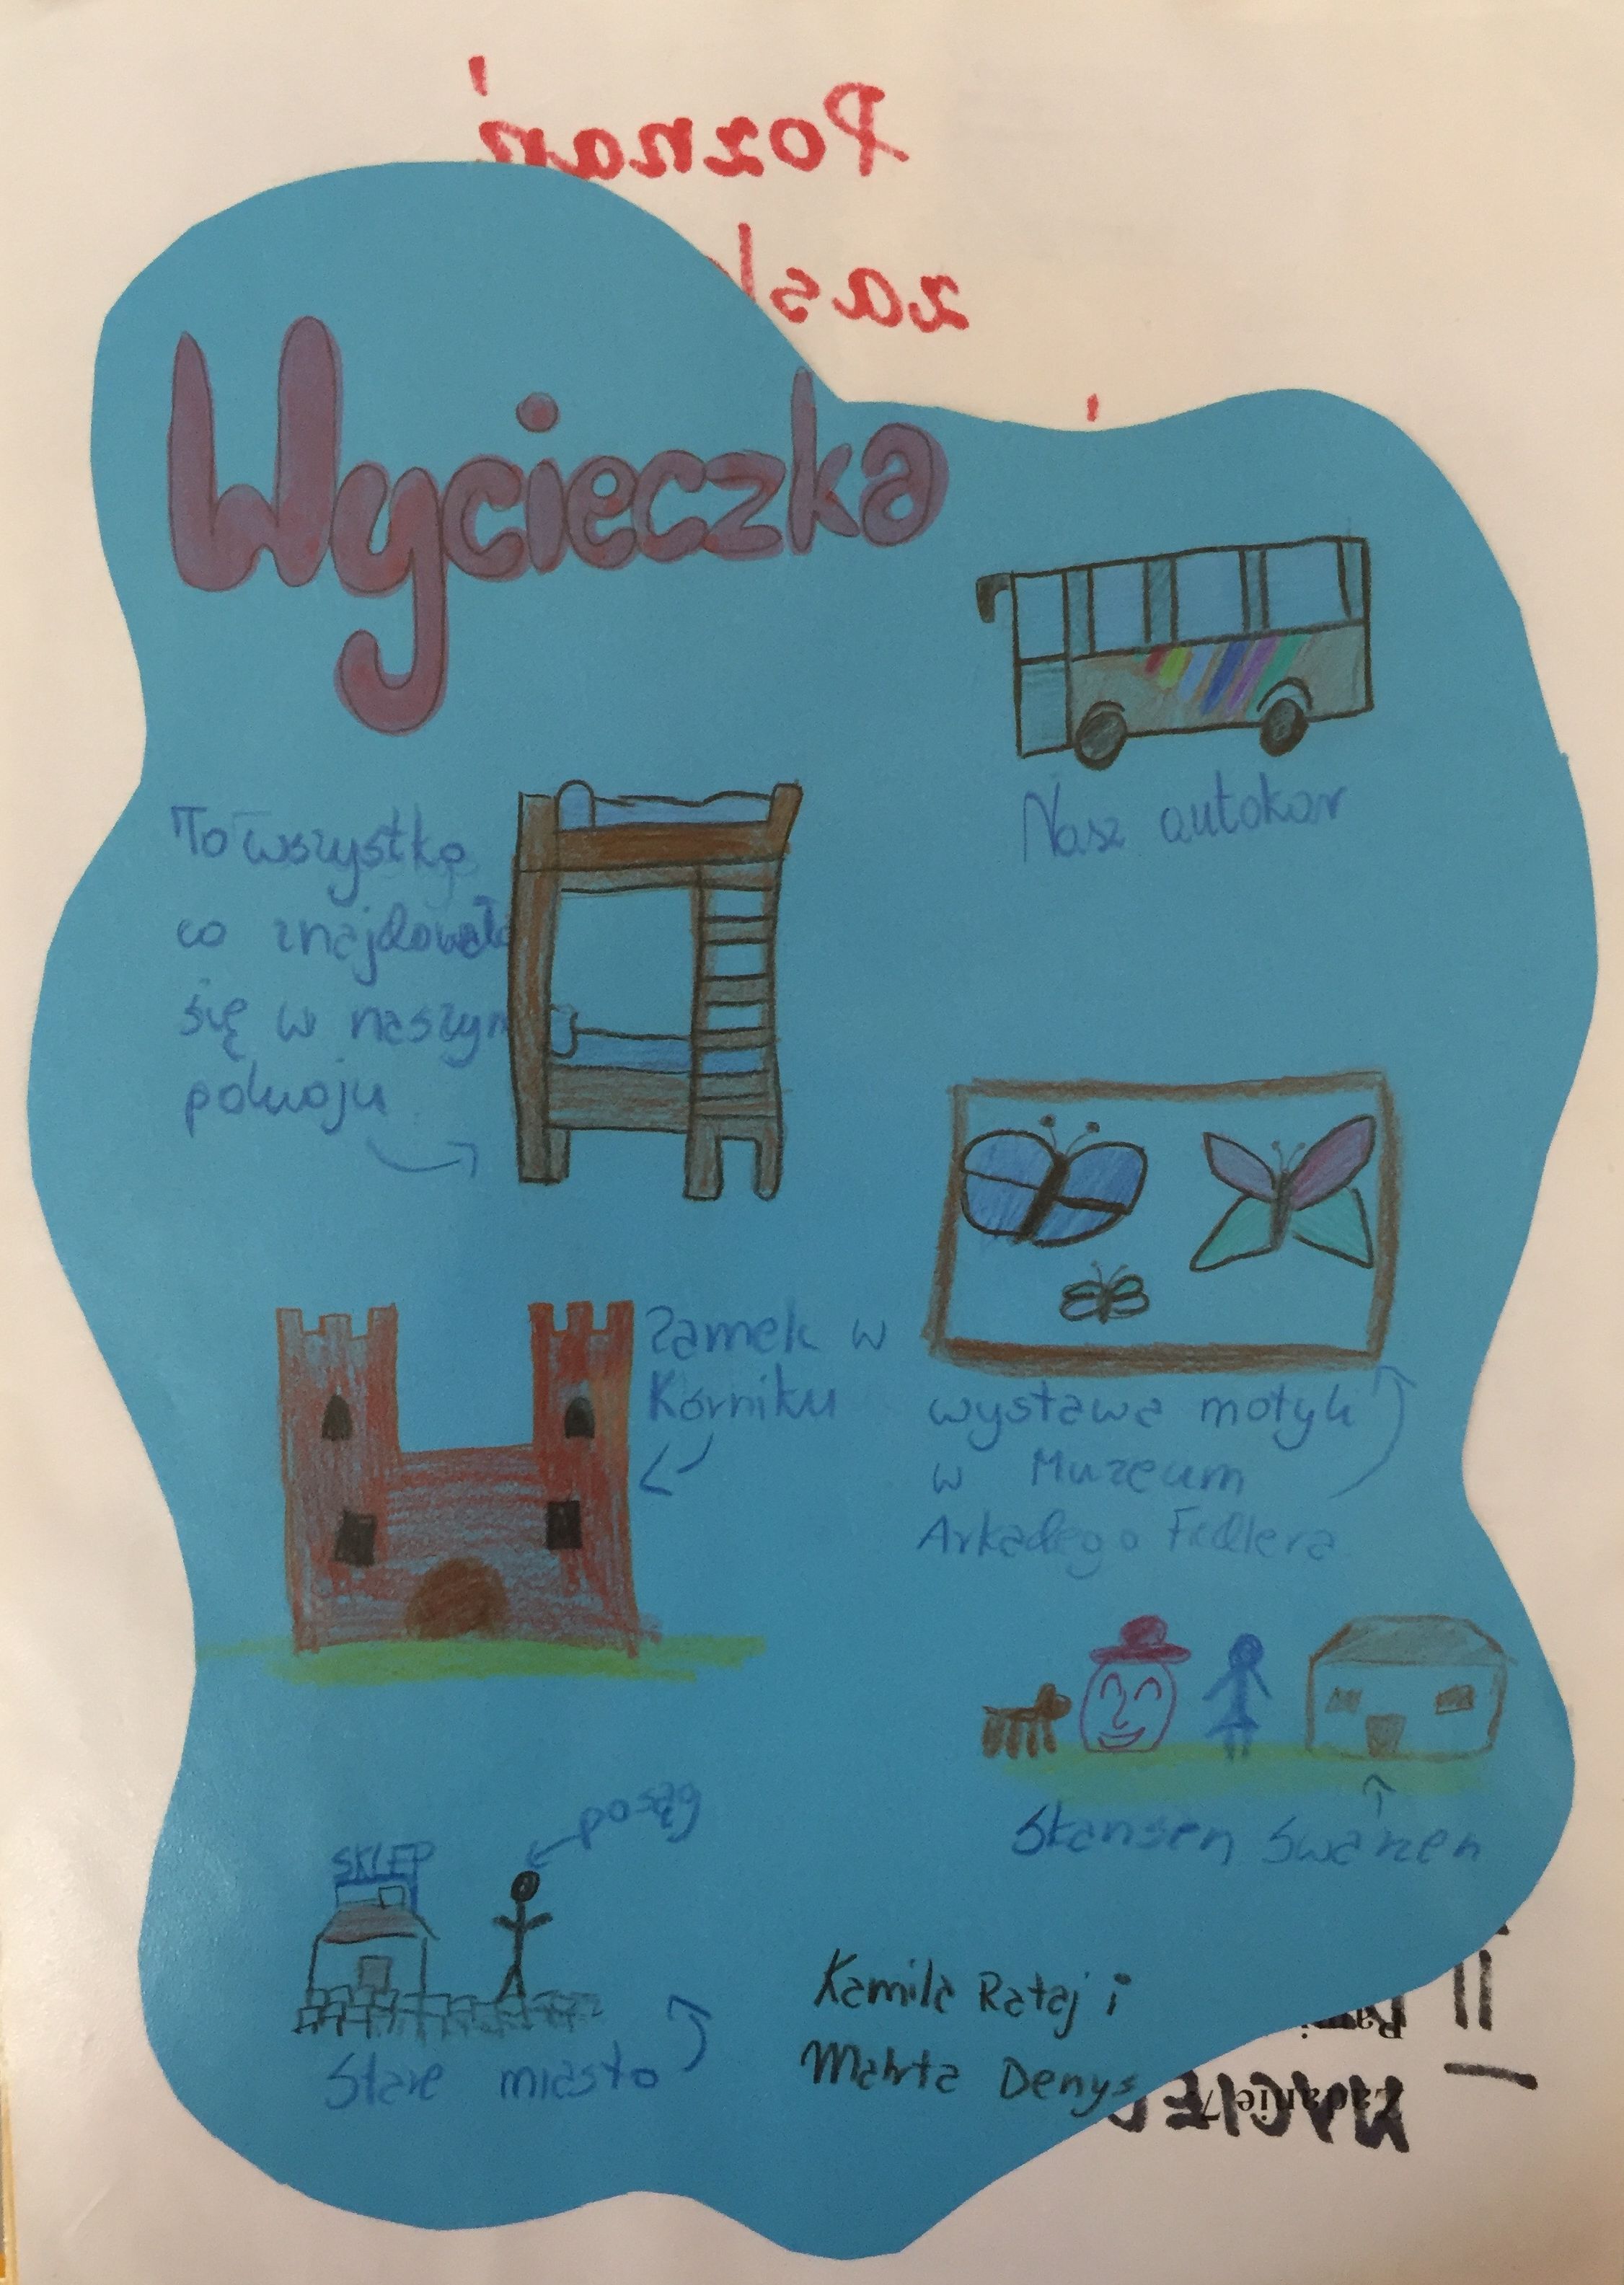 Poznań
Wycieczka
Nasz autokar
To wszystko
co znajdowało
się w naszym
pokoju
Zamek w
Korniku
wystawa motyli
w Muzeum
Arkadego Fiedlera
Skansen Swarzen
posąg
SKLEP
Stare miasto
Kamila Rataj i
Marta Denys